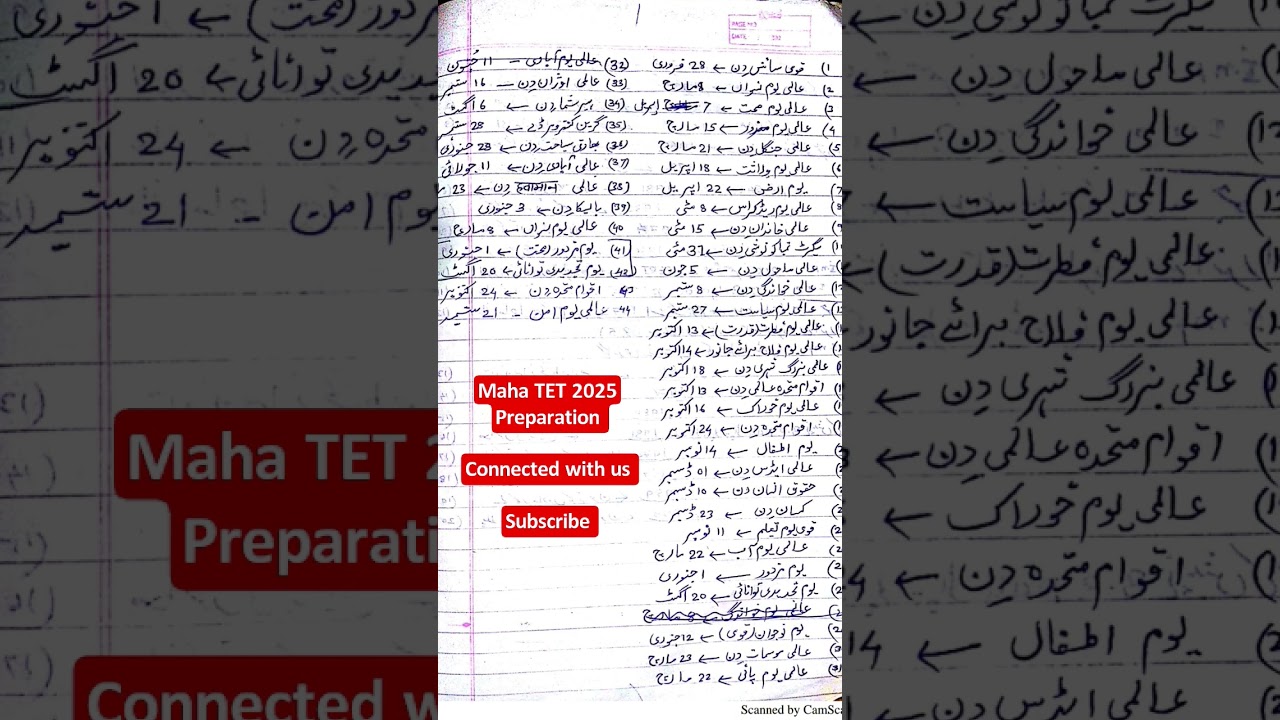 PAGE NO
DATE
1) قومی سائنس دن ← 28 فروری
2) عالمی یوم نسواں ← 8 مارچ
3) عالمی یوم صحت ← 7 اپریل
4) عالمی یوم معذور ← 15 مارچ
5) عالمی جنگل دن ← 21 مارچ
6) عالمی یوم وراثت ← 18 اپریل
7) یوم ارض ← 22 اپریل
8) عالمی یوم ریڈکراس ← 8 مئی
9) عالمی خاندان دن ← 15 مئی
سگرٹ تمباکو نوشی دن ← 31 مئی
عالمی ماحول دن ← 5 جون
عالمی خواندگی دن ← 8 ستمبر
عالمی یوم سیاست ← 27 ستمبر
عالمی یوم فطرت (قدرت) ← 13 اکتوبر
عالمی یوم فلاح برائے جانور ← 14 اکتوبر
عالمی بزرگ شہری دن ← 18 اکتوبر
اقوام متحدہ عالمی دن ← 18 اکتوبر
عالمی یوم خوراک ← 16 اکتوبر
اقوام متحدہ دن ← 24 اکتوبر
یوم اطفال ← 14 نومبر
عالمی ایڈس دن ← 01 ڈسمبر
حقوق انسان دن ← 10 ڈسمبر
کسان دن ← 23 ڈسمبر
قومی یوم تعلیم ← 11 نومبر
عالمی یوم آب ← 22 مارچ
یوم مزدور ← 1 جنوری
یوم تجدیدی توانائی ← 20 اگسٹ
یوم نوجوان (قومی) ← 12 جنوری
عالمی موسمیات دن ← 23 مارچ
عالمی یوم پانی ← 22 مارچ
32) عالمی یوم آبادی – 11 جون
33) عالمی اوزان دن – 16 ستمبر
34) ہیروشیما دن ← 6 اگست
35) گرین کنزیومر ڈے ← 28 ستمبر
36) بھارتی سیاحت دن ← 28 جنوری
37) عالمی آبادی دن ← 11 جولائی
38) عالمی हवामान دن ← 23
39) بالیکا دن ← 3 جنوری
40) عالمی یوم نسواں ← 8 مارچ
41) یوم مزدور (محنت) ← 1 جنوری
42) یوم تجدیدی توانائی ← 20 اگسٹ
43 اقوام متحدہ دن ← 24 اکتوبر
44 عالمی یوم امن – 21 ستمبر
Maha TET 2025
Preparation
Connected with us
Subscribe
Scanned by CamSca